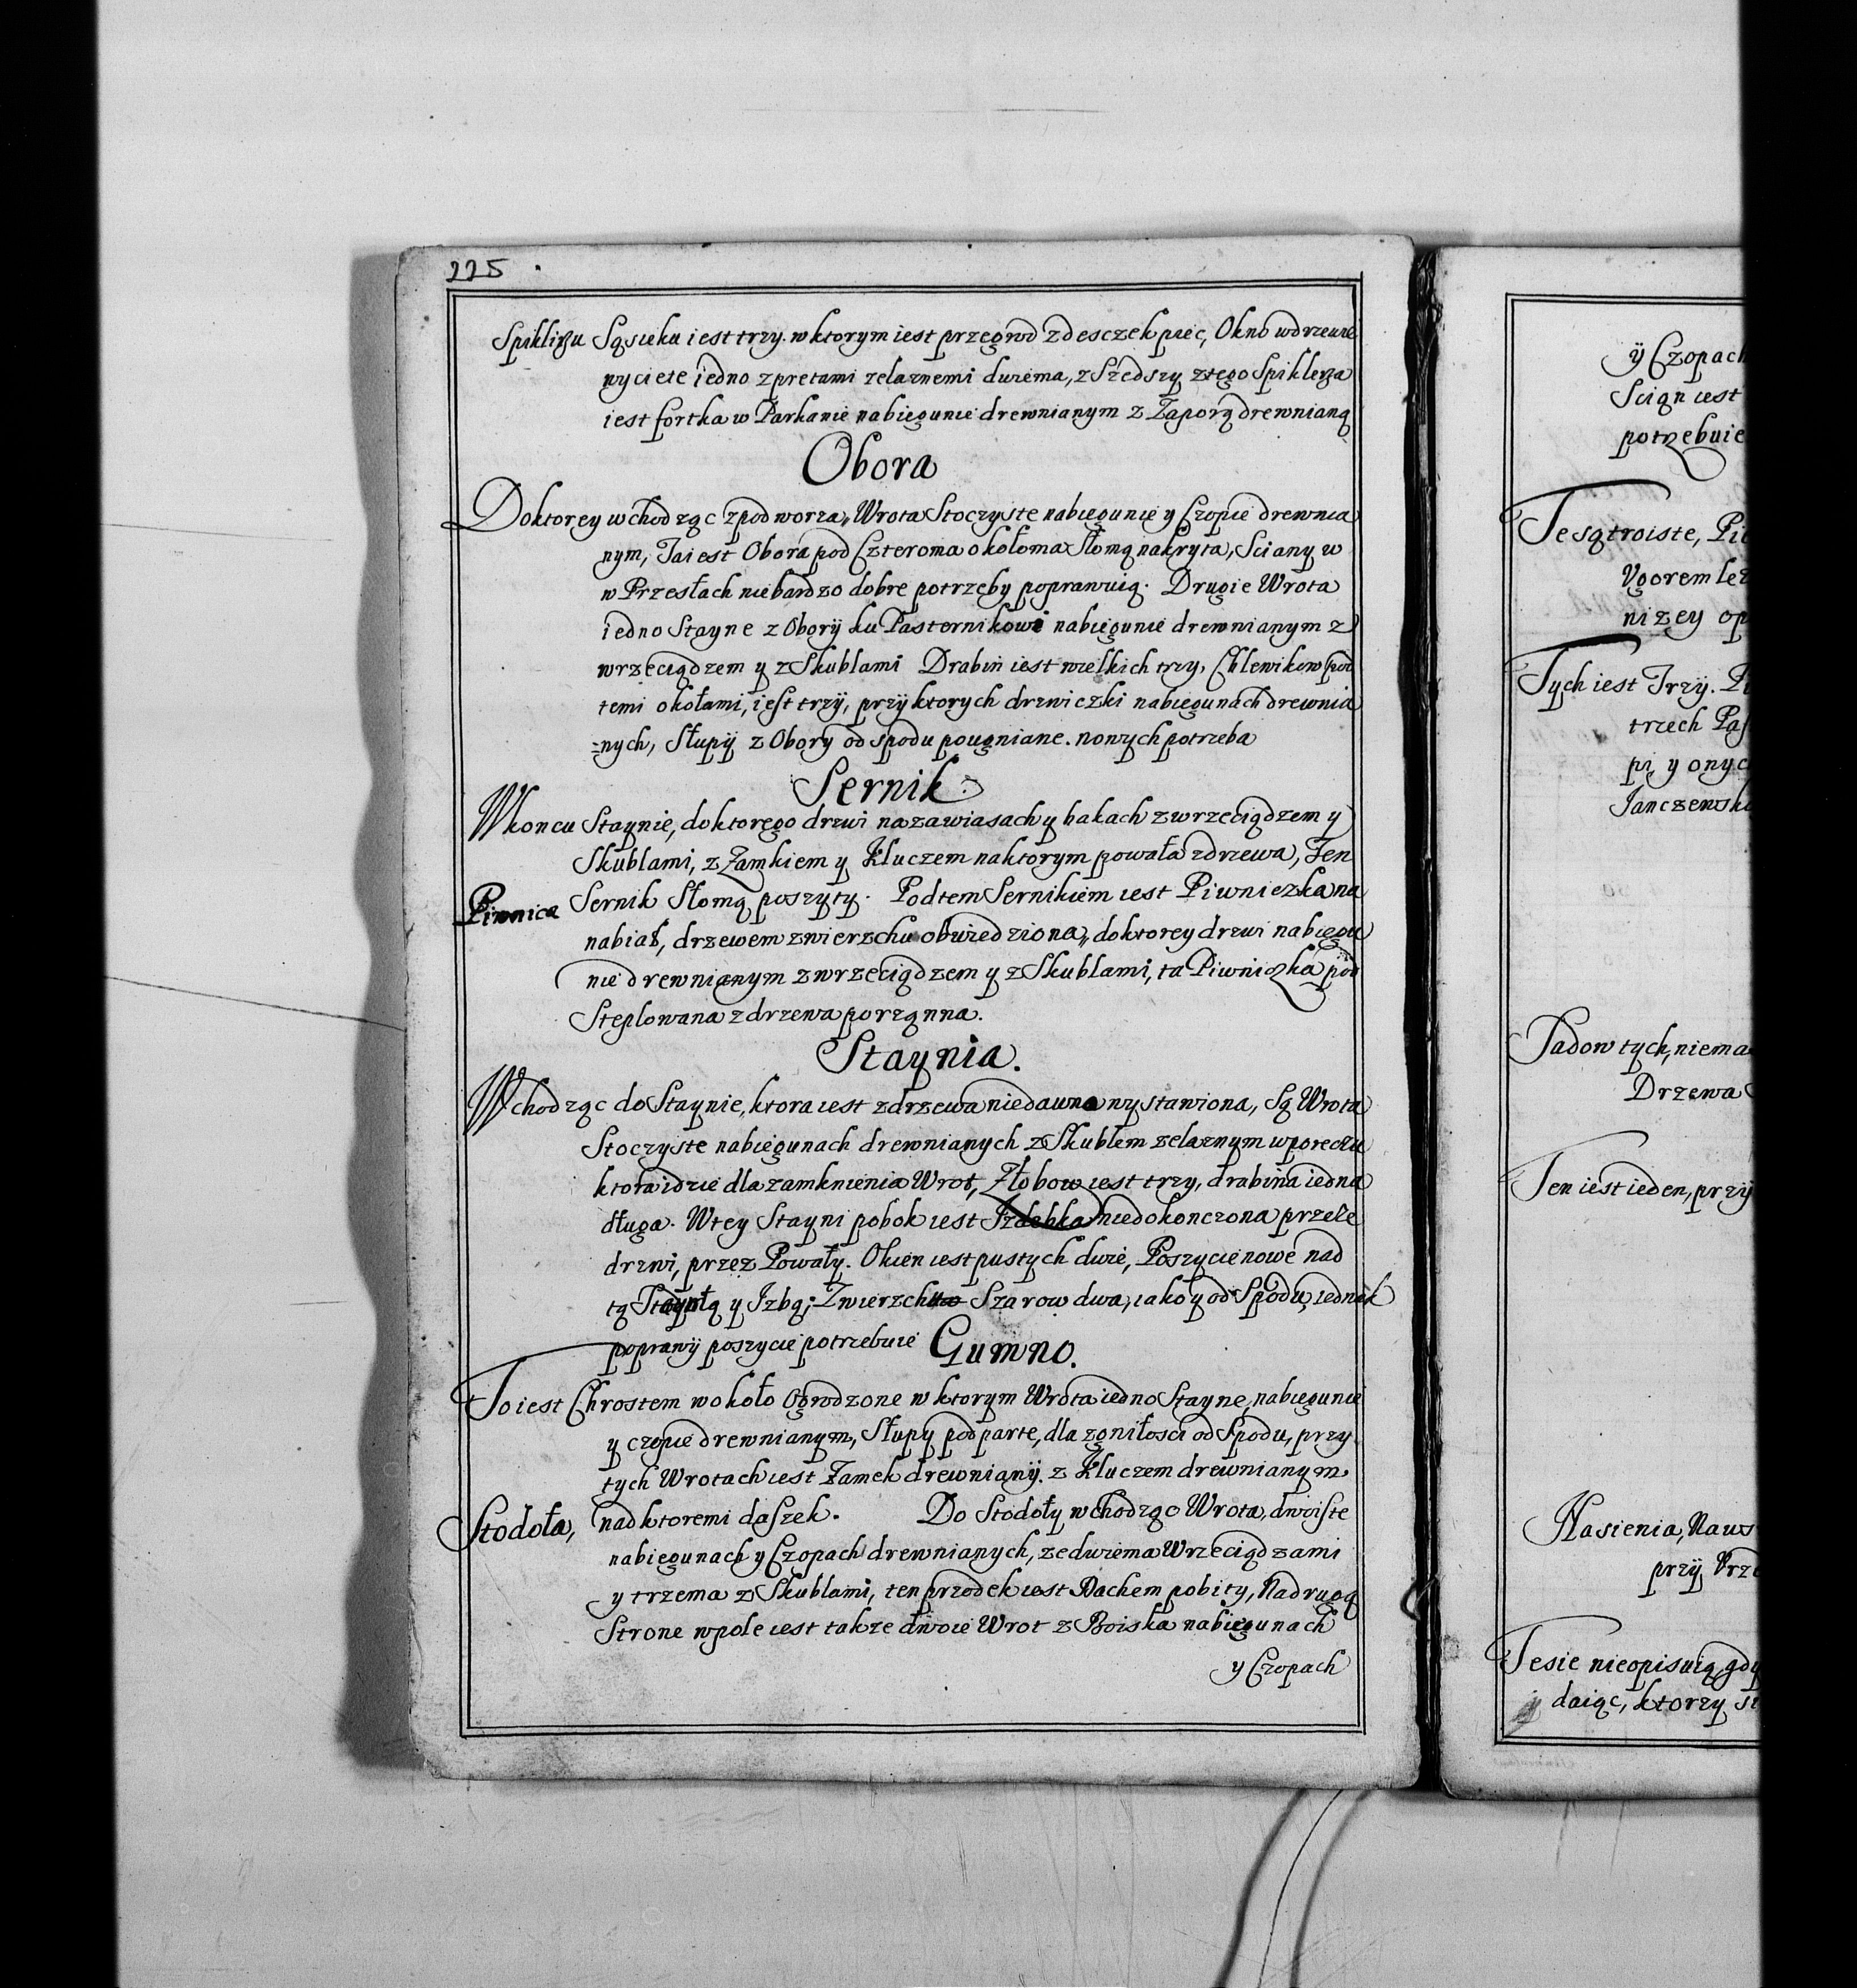 225
Spiklizu Sąsieku iest trzy. w ktorym iest przegrod z desczek piec, Okno w drzewie
wyciete iedno z pretami zelaznemi dwiema, z Szedszy z tego Spiklerza
iest fortka w Parkanie na biegunie drewnianym z Zaporą drewnianą
Obora
Do ktorey wchodząc z podworza, Wrota Stoczyste na biegunie y Czopie drewnia
nym, Ta iest Obora pod Czteroma okołoma Słomą nakryta, Sciany w
w Przesłach nie bardzo dobre potrzeby poprawuią. Drugie Wrota
iedno Stayne z Obory ku Pasternikowi na biegunie drewnianym z
wrzeciądzem y z Skublami Drabin iest wielkich trzy, Chlewikow pod
temi okołami, iest trzÿ, przÿ ktorych drzwiczki na biegunach drewnia
=nych, Słupÿ z Obory od spodu pougniane. nowych potrzeba
Sernik.
W koncu Staynie, do ktorego drzwi na zawiasach y hakach z wrzeciądzem y
Skublami, z Zamkiem y Kluczem na ktorym powała z drzewa, Ten
Piwnica Sernik Słomą poszyty. Pod tem Sernikiem iest Piwniczka na
nabiał, drzewem z wierzchu obwiedziona, do ktorey drzwi na biegu
nie drewnianym z wrzeciądzem y z Skublami, ta Piwniczka pod
Steplowana z drzewa porząnna.
Staynia.
Wchodząc do Staynie, ktora iest z drzewa niedawno wystawiona, Są Wrota
Stoczyste na biegunach drewnianych z Skublem zelaznym w poreczu
ktora idzie dla zamknienia Wrot, Złobow iest trzy, drabina iedna
długa. W tey Stayni pobok iest Izdebka niedokonczona przeze
drzwi, przez Powały. Okien iest pustych dwie, Poszycie nowe nad
tą Staynią y Izbą; Zwierzchu Szarow dwa, iako y od Spodu, iednak
poprawÿ poszycie potrzebuie Gumno.
To iest Chrostem wokoło Ogrodzone w ktorym Wrota iedno Stayne, na biegunie
y czopie drewnianym, Słupy podparte, dla zgniłosci od Spodu, przy
tych Wrotach iest Zamek drewnianÿ. z Kluczem drewnianym
Stodoła, nad ktoremi daszek. Do Stodoły wchodząc Wrota, dwoiste
na biegunach y Czopach drewnianych, ze dwiema Wrzeciądzami
y trzema z Skublami, ten przodek iest Dachem pobity, Na drugą
Strone w pole iest takze dwoie Wrot z Boiska na biegunach
y Czopach
ÿ Czopach
Scian iest
potrzebuie
Te są troiste,
Ugorem
nizey
Tych iest Trzÿ.
trzech
pi, y
Sadow tych, niema
Drzewa
Ten iest ieden, przÿ
Nasienia,
przÿ
Te sie nieopisuią, gdy
daiąc, ktorzy